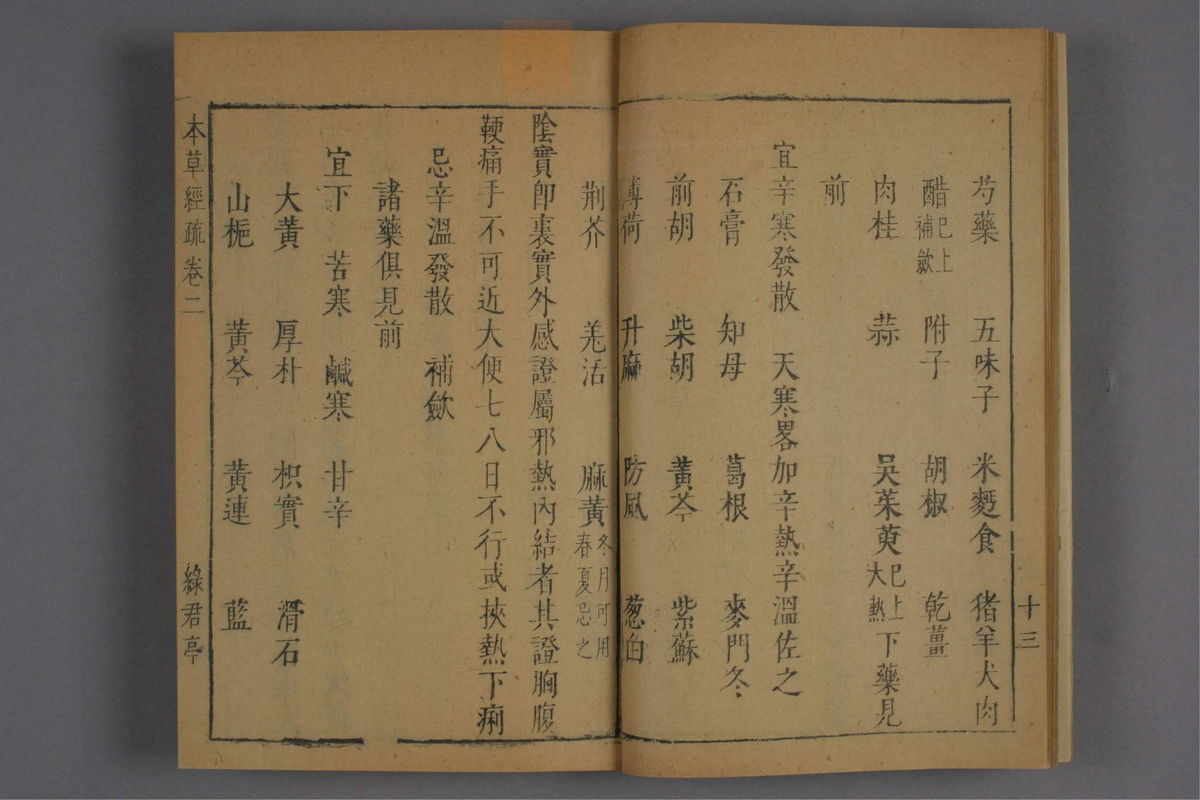 十三
芍藥 五味子 米麫食 猪羊犬肉
醋已上補斂 附子 胡椒 乾薑
肉桂 蒜 吳茱萸已上大熱 下藥見
前
宜辛寒發散 天寒畧加辛熱辛溫佐之
石膏 知母 葛根 麥門冬
前胡 柴胡 黃芩 紫蘇
薄荷 升麻 防風 葱白
荆芥 羌活 麻黃冬月可用春夏忌之
陰實卽裏實外感證屬邪熱內結者其證胸腹
鞕痛手不可近大便七八日不行或挾熱下痢
忌辛溫發散 補斂
諸藥俱見前
宜下 苦寒 鹹寒 甘辛
大黃 厚朴 枳實 滑石
山梔 黃芩 黃連 藍
本草經疏卷二 綠君亭